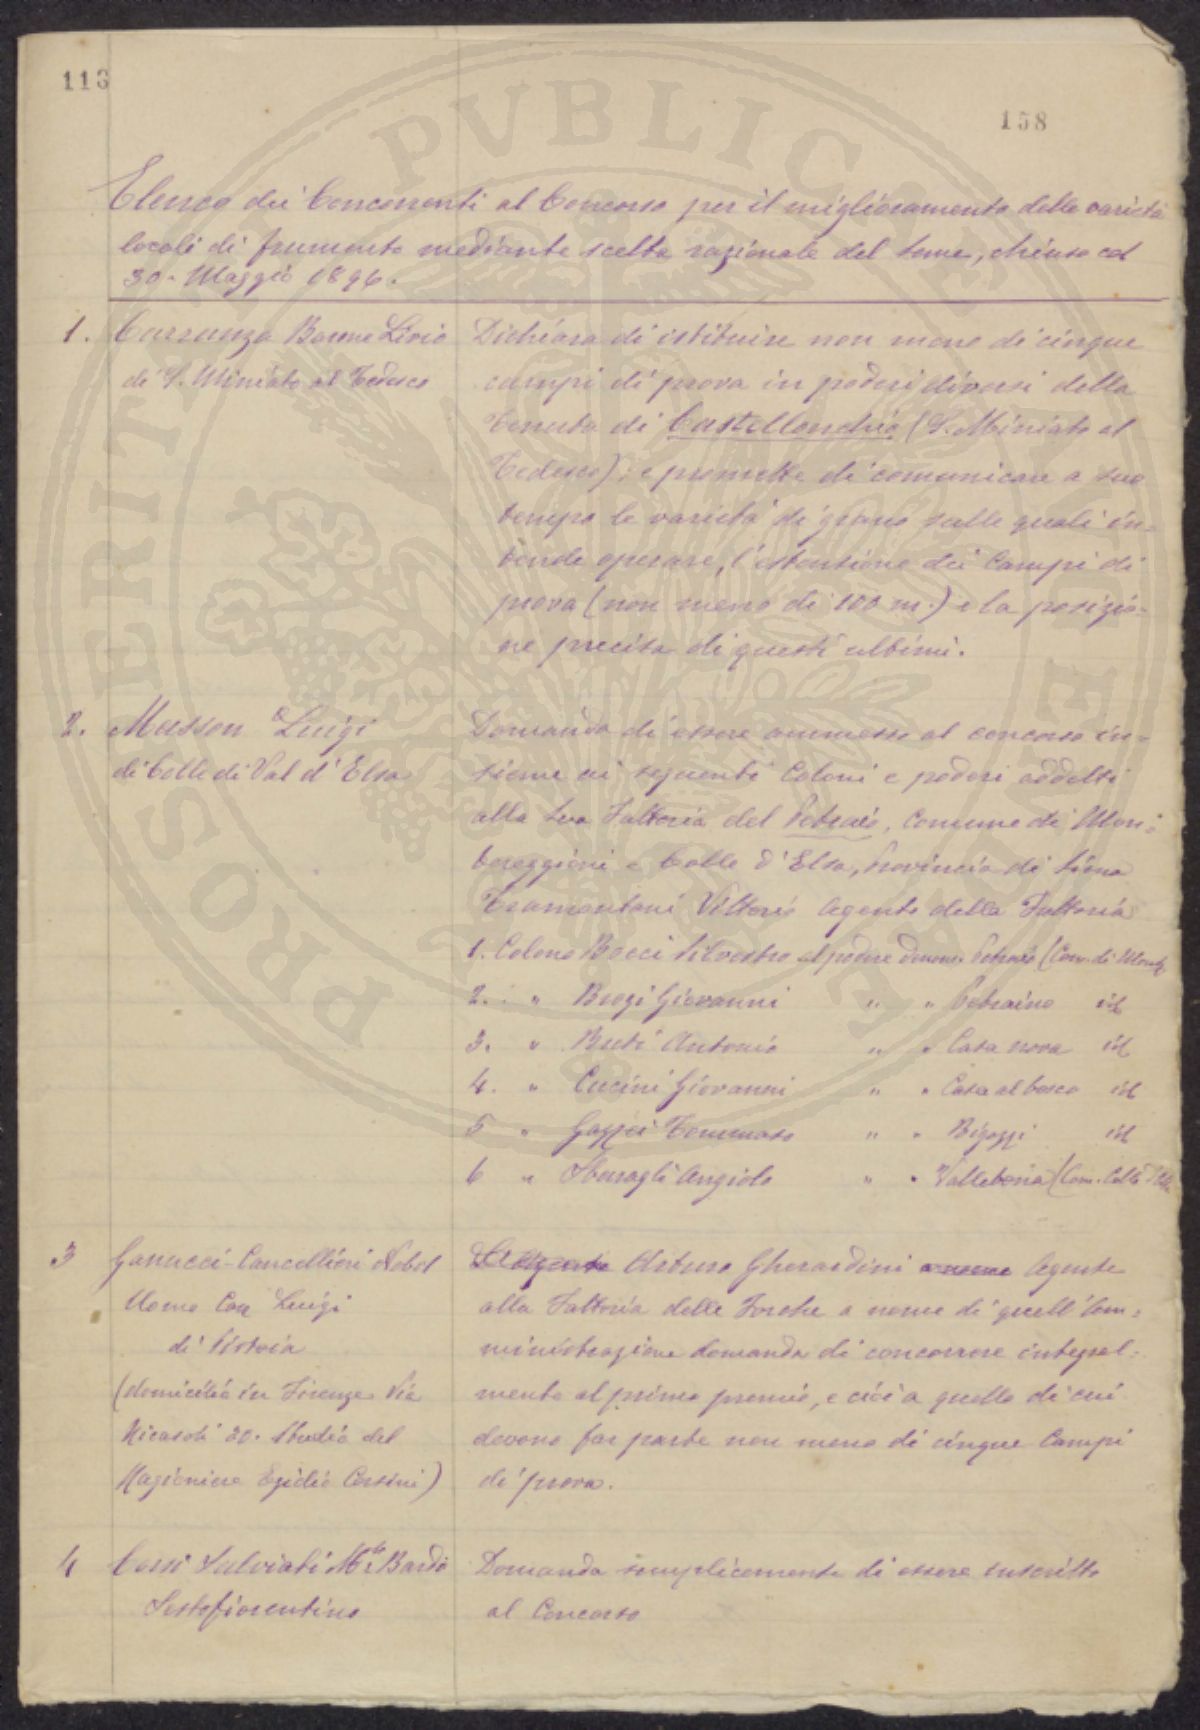 113
158
PROSPERITATI PVBLICAE
Elenco dei Concorrenti al Concorso per il miglioramento delle varietà
locali di frumento mediante scelta razionale del seme, chiuso col
30. Maggio 1896.
1. Carranza Barone Livio
di S. Miniato al Tedesco
Dichiara di istituire non meno di cinque
campi di prova in poderi diversi della
Tenuta di Castellonchio (S. Miniato al
Tedesco); e promette di comunicare a suo
tempo le varietà di grano sulle quali in=
tende operare, l'estensione dei Campi di
prova (non meno di 100 m.) e la posizio=
ne precisa di questi ultimi.
2. Musson Luigi
di Colle di Val d'Elsa
Domanda di essere ammesso al concorso in=
sieme ai seguenti Coloni e poderi addetti
alla sua Fattoria del Petraio, Comune di Mon=
tereggioni e Colle d'Elsa, Provincia di Siena
Tramontani Vittorio Agente della Fattoria
1. Colono Bocci Silvestro al podere denom. Petraio (Com. di
2. " Brogi Giovanni " " Petraino id
3. " Buti Antonio " " Casa nova id
4. " Cucini Giovanni " " Casa al bosco id
5 " Gazzei Tommaso " " Bigozzi id
6 " Sbaragli Angiolo " " Vallebona (Com. Colle d'Elsa
3 Ganucci-Cancellieri Nobil
Uomo Cav Luigi
di Pistoia
(domicilio in Firenze Via
Ricasoli 20. Studio del
Ragioniere Egidio Corsini)
Arturo Gherardini Agente
alla Fattoria delle Forche a nome di quell'Am=
ministrazione domanda di concorrere integral=
mente al primo premio, e cioè a quello di cui
devono far parte non meno di cinque Campi
di prova.
4 Corsi Salviati M.se Bardo
Sestofiorentino
Domanda semplicemente di essere inscritto
al Concorso